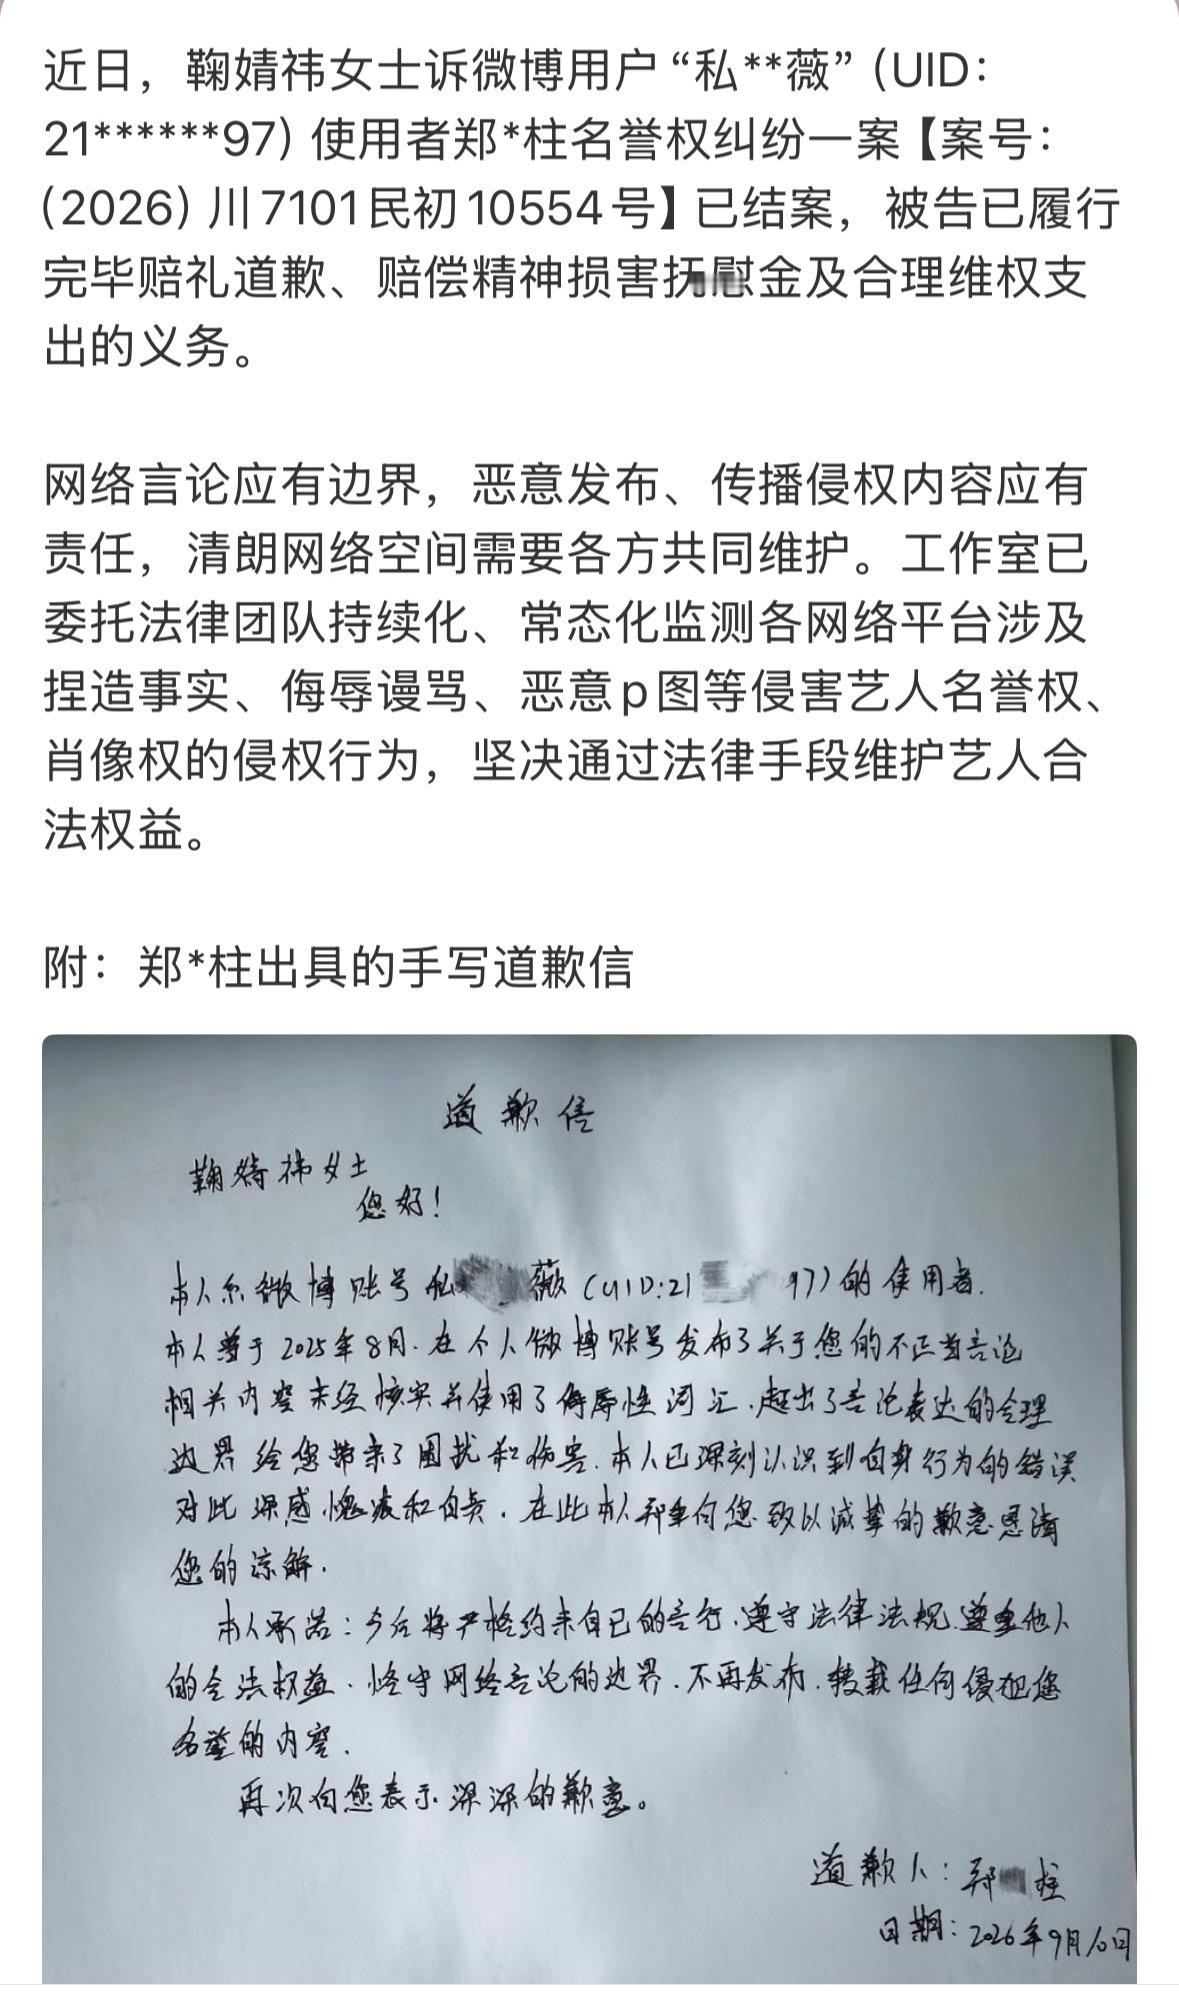 近日，鞠婧祎女士诉微博用户“私**薇”（UID：
21******97）使用者郑*柱名誉权纠纷一案【案号：
（2026）川7101民初10554号】已结案，被告已履行
完毕赔礼道歉、赔偿精神损害抚慰金及合理维权支
出的义务。
网络言论应有边界，恶意发布、传播侵权内容应有
责任，清朗网络空间需要各方共同维护。工作室已
委托法律团队持续化、常态化监测各网络平台涉及
捏造事实、侮辱谩骂、恶意p图等侵害艺人名誉权、
肖像权的侵权行为，坚决通过法律手段维护艺人合
法权益。
附：郑*柱出具的手写道歉信
道歉信
鞠婧祎女士
您好！
本人系微博账号私 薇（UID:21 97）的使用者.
本人曾于2025年8月.在个人微博账号发布了关于您的不正当言论
相关内容未经核实并使用了侮辱性词汇.超出了言论表达的合理
边界给您带来了困扰和伤害.本人已深刻认识到自身行为的错误
对此深感愧疚和自责.在此本人郑重向您致以诚挚的歉意恳请
您的谅解.
本人承诺：今后将严格约束自己的言行.遵守法律法规.尊重他人
的合法权益.恪守网络言论的边界.不再发布.转载任何侵犯您
名誉的内容.
再次向您表示深深的歉意。
道歉人：郑 柱
日期：2026年9月10日